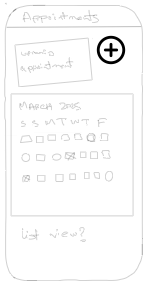 Appointments
Upcoming
Appointment
MARCH 2025
S S M T W T F
List view?